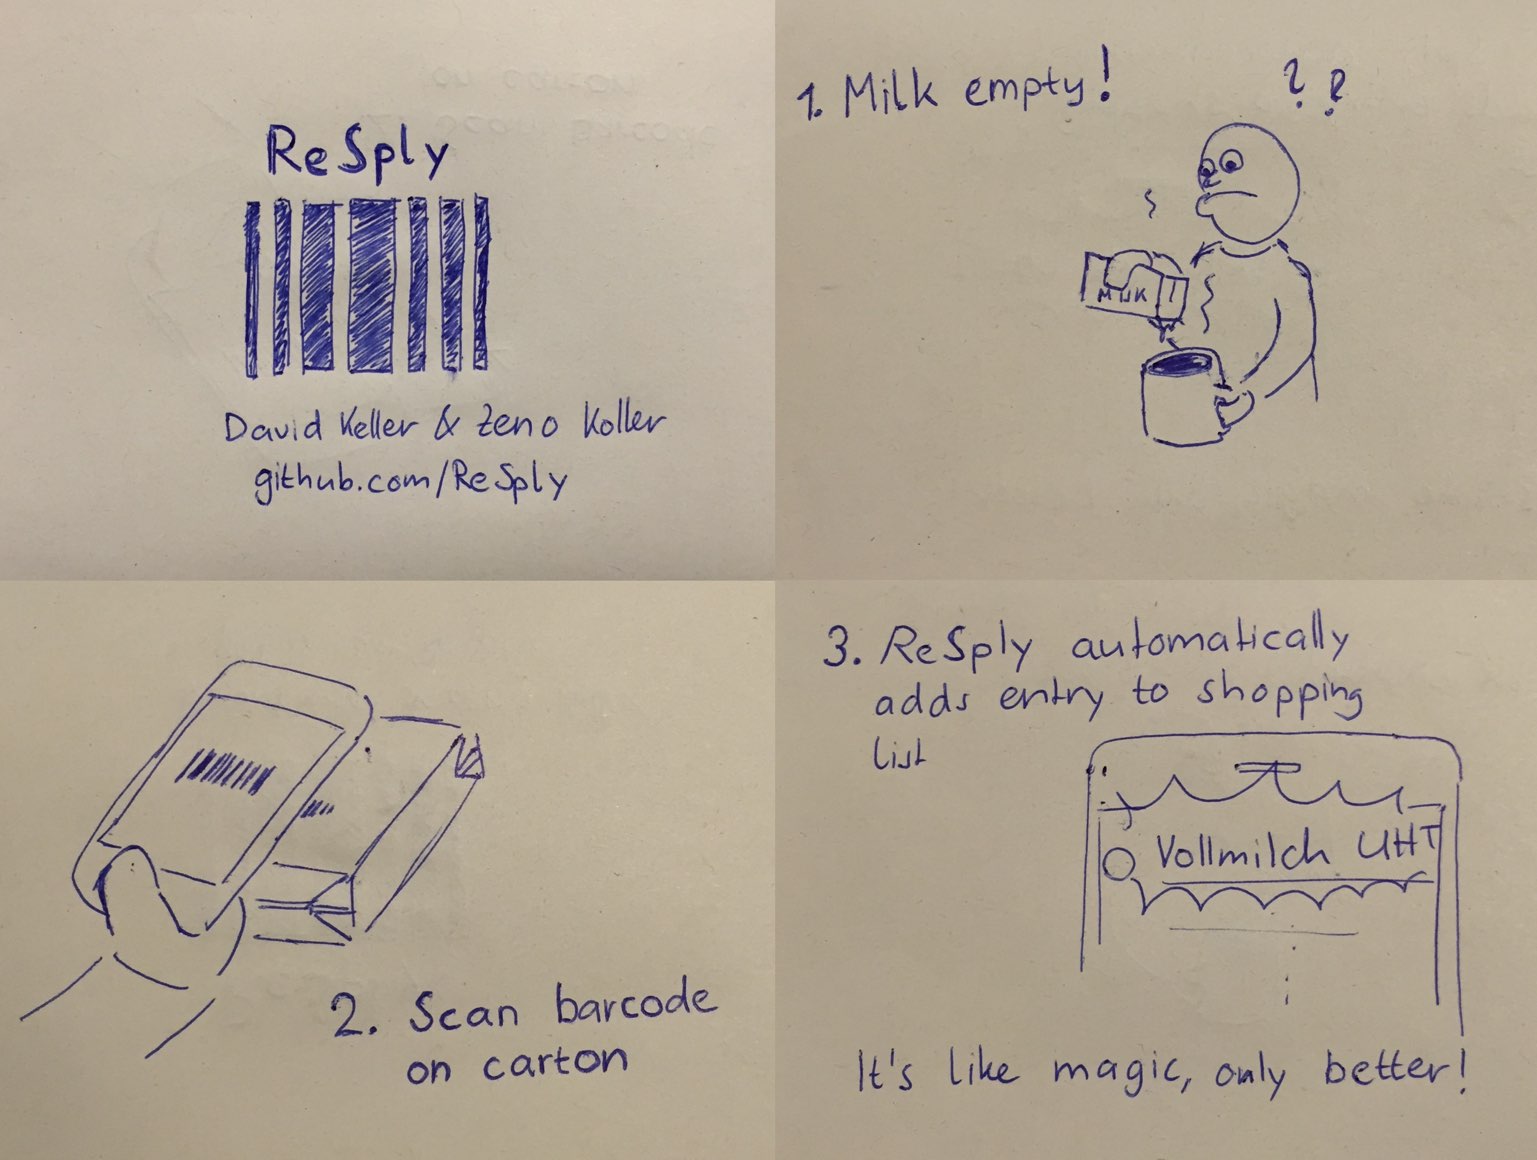 ReSply
David Keller & Zeno Koller
github.com/ReSply
1. Milk empty!
? ?
MILK
2. Scan barcode
on carton
3. ReSply automatically
adds entry to shopping
list
Vollmilch UHT
It's like magic, only better!